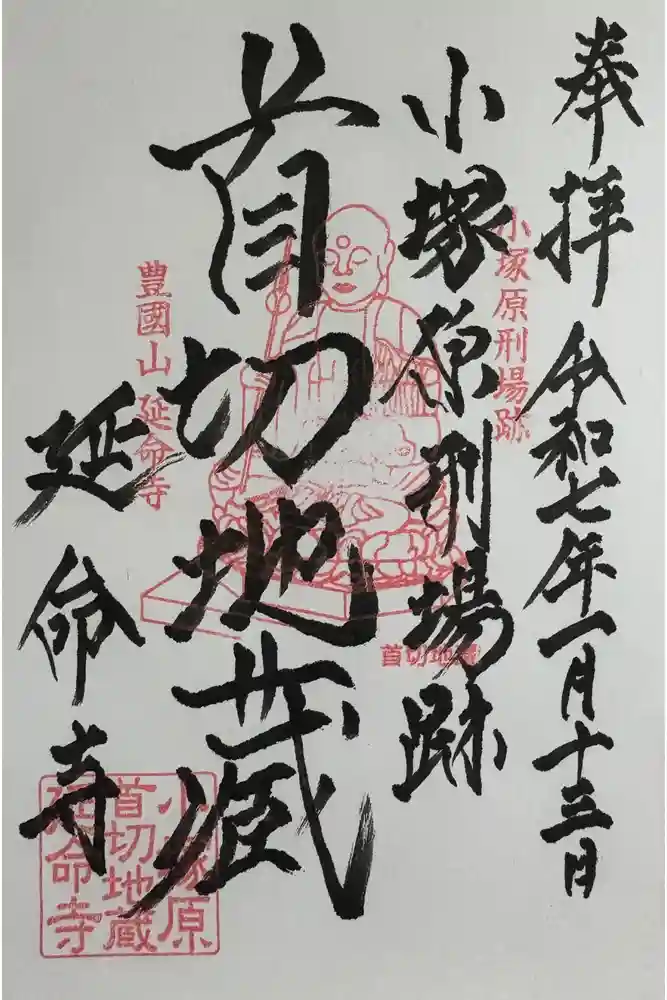 奉拝 令和七年一月十三日
小塚原刑場跡
小塚原刑場跡
首切地蔵
首切地蔵
豊國山 延命寺
延命寺
小塚原
首切地蔵
延命寺